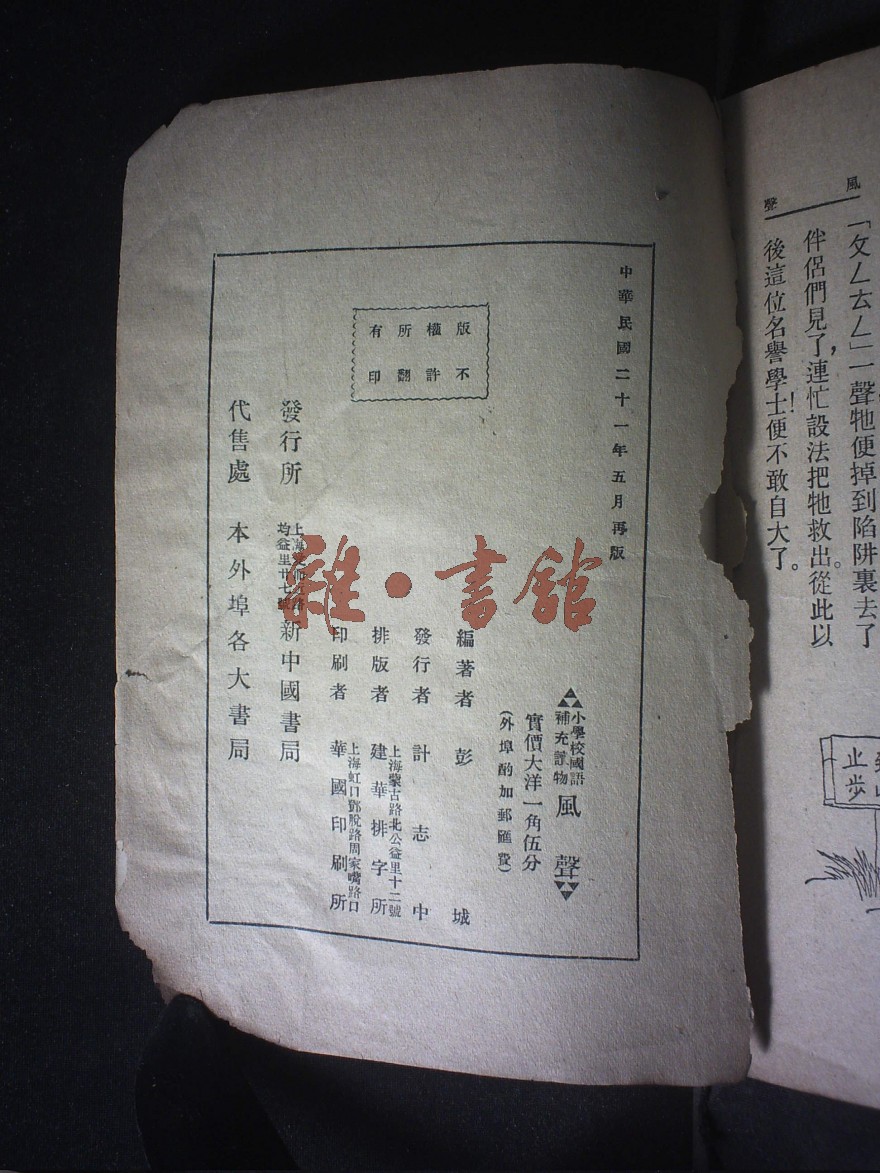 風聲
「攵ㄥ ㄊㄥ」一聲牠便掉到陷阱裏去了
伴侶們見了,連忙設法把牠救出。從此以
後這位名譽學士!便不敢自大了。
止步
中華民國二十一年五月再版
版權所有
不許翻印
小學校國語
補充讀物
風聲
實價大洋一角伍分
(外埠酌加郵匯費)
編著者 彭城
發行者 計志中
排版者 上海蒙古路北公益里十二號 建華排字所
印刷者 上海虹口鄧脫路周家嘴路口 華國印刷所
發行所 上海
均益里廿七號 新中國書局
代售處 本外埠各大書局
雜·書舘